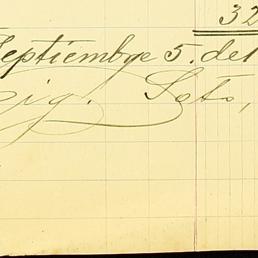 32
Septiembre 5. del
Sots,